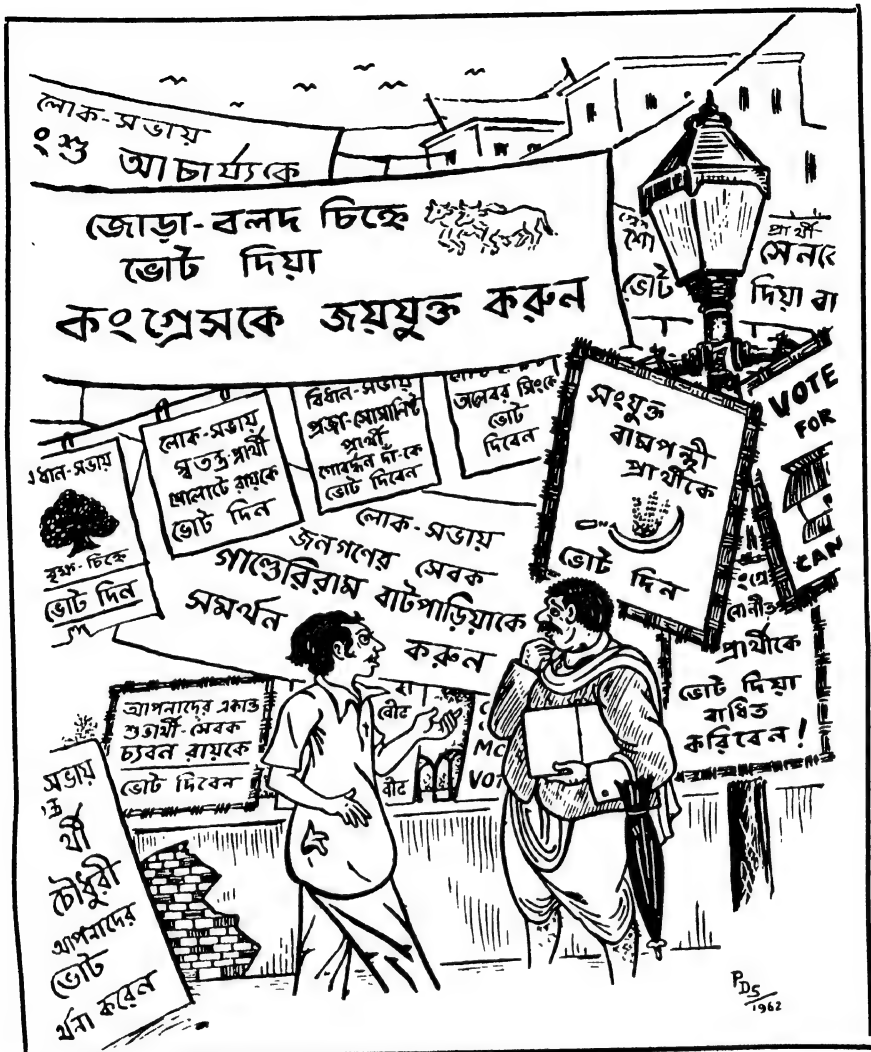 লোক-সভায়
ংশু আচার্য্যকে
জোড়া-বলদ চিহ্নে
ভোট দিয়া
কংগ্রেসকে জয়যুক্ত করুন
প্রার্থী
শো সেনকে
ভোট দিয়া বা
ধান-সভায়
বৃক্ষ-চিহ্নে
ভোট দিন
লোক-সভায়
স্বতন্ত্র প্রার্থী
গোলোটে রায়কে
ভোট দিন
বিধান-সভায়
প্রজা-সোসালিষ্ট
প্রার্থী
গোবর্দ্ধন দাঁ-কে
ভোট দিবেন
তালেবর সিংকে
ভোট
দিবেন
সংযুক্ত
বামপন্থী
প্রার্থীকে
ভোট দিন
VOTE
FOR
CAN
লোক-সভায়
জনগণের সেবক
গাণ্ডেরিরাম বাটপাড়িয়াকে
সমর্থন করুন
ংগ্রে
নোনীত
প্রার্থীকে
ভোট দিয়া
বাধিত
করিবেন!
আপনাদের একান্ত
শুভার্থী-সেবক
চ্যবন রায়কে
ভোট দিবেন
বীট
বীট
C
MC
VOT
সভায়
ন্ত্র
র্থী
চৌধুরী
আপনাদের
ভোট
র্থনা করেন
PDS
1962